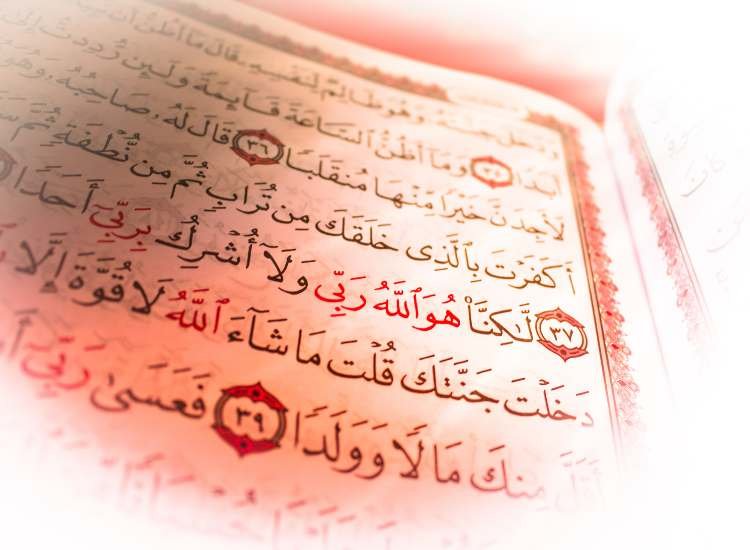 وَدَخَلَ جَنَّتَهُۥ وَهُوَ ظَالِمٌ لِّنَفْسِهِۦ قَالَ مَآ أَظُنُّ أَن
أَبَدًا ٣٥ وَمَآ أَظُنُّ ٱلسَّاعَةَ قَآئِمَةً وَلَئِن رُّدِدتُّ إِلَىٰ
لَأَجِدَنَّ خَيْرًا مِّنْهَا مُنقَلَبًا ٣٦ قَالَ لَهُۥ صَاحِبُهُۥ وَهُوَ
أَكَفَرْتَ بِٱلَّذِى خَلَقَكَ مِن تُرَابٍ ثُمَّ مِن نُّطْفَةٍ ثُمَّ
٣٧ لَّٰكِنَّا۠ هُوَ ٱللَّهُ رَبِّى وَلَآ أُشْرِكُ بِرَبِّىٓ أَحَدًا
دَخَلْتَ جَنَّتَكَ قُلْتَ مَا شَآءَ ٱللَّهُ لَا قُوَّةَ إِلَّا
أَقَلَّ مِنكَ مَالًا وَوَلَدًا ٣٩ فَعَسَىٰ رَبِّىٓ